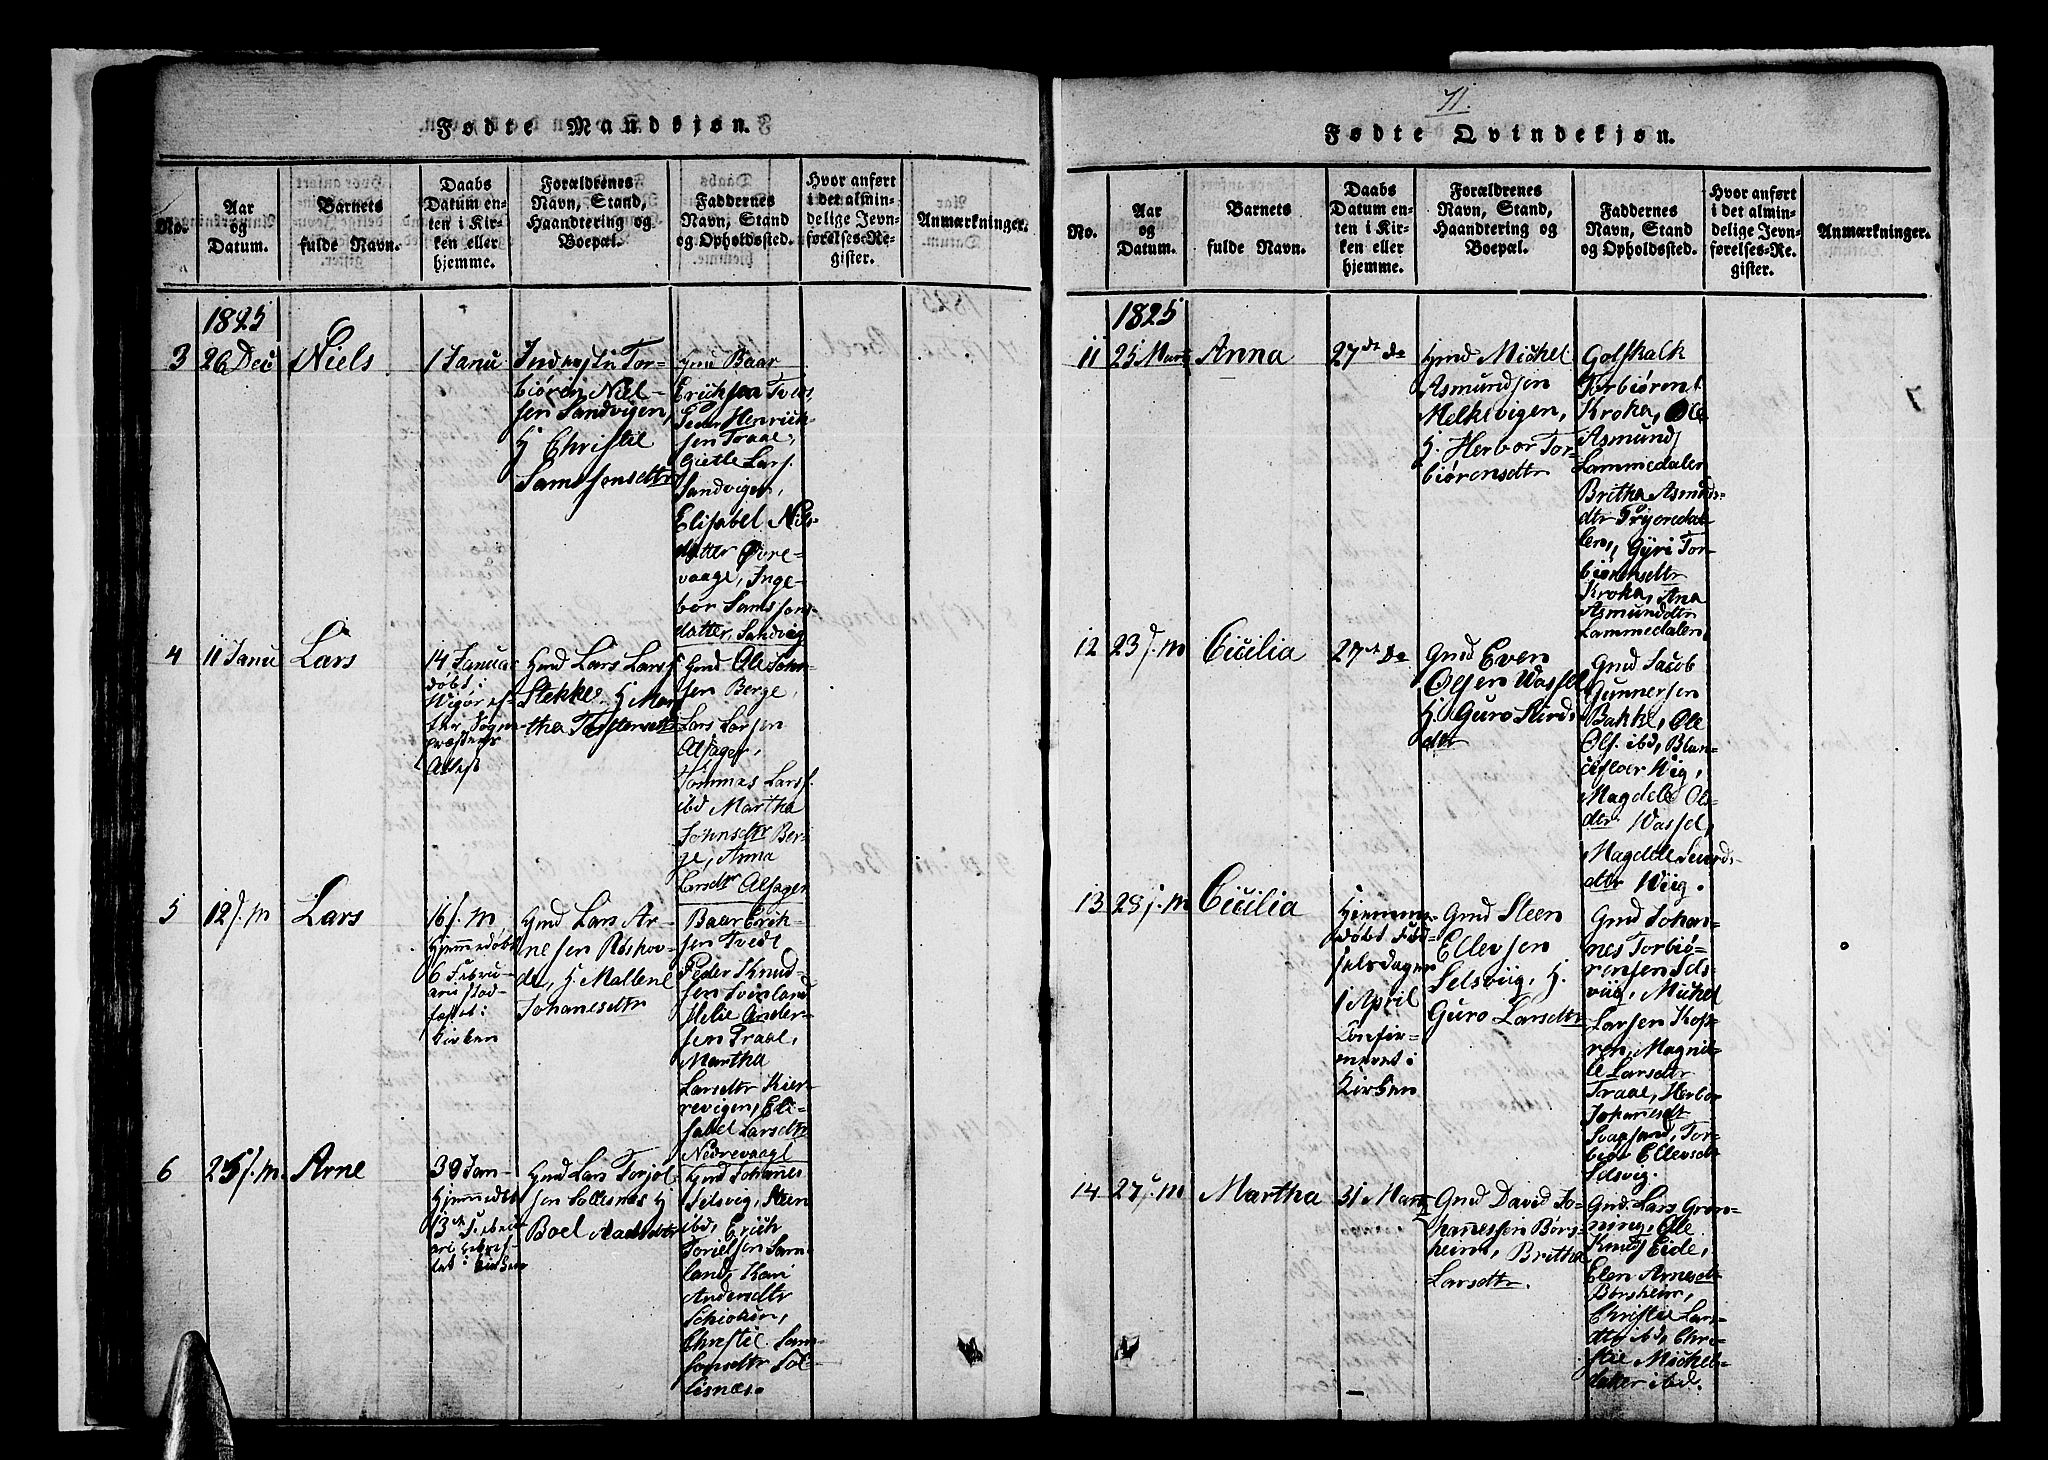 71.
Fødte Mandkjøn.
No.
Aar
og
Datum.
Barnets
fulde Navn.
Daabs
Datum en-
ten i Kir-
ken eller
hjemme.
Forældrenes
Navn, Stand,
Haandtering og
Boepæl.
Faddernes
Navn, Stand
og Opholdssted.
Hvor anført
i det almin-
delige Jevn-
førelses-Re-
gister.
Anmærkninger.
1825
3
26 Dec
Niels
1 Janu
Tor-
biørn Niel-
sen Sandvigen,
H Christie
Samsonsdtr
Gmd Baar
Erichsen Tvedt,
Peder Henrick-
sen Traae,
Gietle Lars.
Sandvigen,
Elisabet Niels-
datter Øvre-
vaage, Inge-
bor Samsons-
datter, Sandvig
4
11 Janu
Lars
14 Janua
døbt i
Wigør ef-
ter Sogne
præstens
Attest
Gmd Lars Lars.
Stekke, H Mar-
tha Tostensdtr
Gmd Ole John-
sen Berge,
Lars Larsen
Alsager,
Tommas Lars.
ibd Martha
Johnsdtr Ber-
ge, Anna
Larsdtr Alsager
5
12 J. M
Lars
16 J. M
Hjemmedøbt
6 Febru-
ari stad-
fæstet i
Kirken
Gmd Lars Ar-
nesen Røshov-
de, H. Mallene
Johanesdtr
Baar Erik-
sen Tvedt
Peder Knud-
sen Svinland
Helie Ander-
sen Traae,
Martha
Larsdtr Kier-
revigen, Eli-
sabet Larsdtr
Nedrevaage
6
25 J. M.
Arne
30 Jan-
Hjemmedøbt
13 Febru
ari
tet i Kirken
Gmd Lars Torjol
sen Sollesnæs H
Boel Aadsdtr
Gmd Johannes
Selsvig, Steen
ibd, Erich
Torielsen Sam-
land, Kari
Andersdtr
Christie Sam-
sonsdtr Sol-
lesnæs.
Fødte Qvindekjøn.
No.
Aar
og
Datum.
Barnets
fulde Navn.
Daabs
Datum en-
ten i Kir-
ken eller
hjemme.
Forældrenes
Navn, Stand,
Haandtering og
Boepæl.
Faddernes
Navn, Stand
og Opholdssted.
Hvor anført
i det almin-
delige Jevn-
førelses-Re-
gister.
Anmærkninger.
1825
11
25 Mart
Anna
27de do
Gmd Michel
Asmundsen
Melkevigen,
H. Herbor Tor-
biørensdtr
Golfskalk
Torbiørens.
Kroka, Ole
Asmunds
Lammedalen
Britha Asmunds-
dtr
len, Gyri Tor-
biørensdtr
Kroka, Ana
Asmunddtr
Lammedalen
12
23 J. M
Cicilia
27 do
Gmd Even
Olsen Wasfel
H. Guro Siurds-
dtr
Gmd Jacob
Gunnersen
Bakke, Ole
Ols. ibd,
Wig,
Magdele Ols-
dtr Wasfel,
Magdele Siurds-
dtr Wiig.
13
28 J. M
Cicilia
Hjemme-
døbt Fød-
selsdagen
1 April
Confir-
meret i
Kirken
Gmd Steen
Ellevsen
Selsviig, H.
Guro Larsdtr
Gmd Johan-
nes Torbiø-
rensen Sels-
viig, Michel
Larsen
Magnil-
le Larsdtr
Traae, Herbor
Johanesdtr
Svaasand, Tor-
bior Ellevsdtr
Selsvig.
14
27 J. M
Martha
31 Mart
Gmd David Jo-
hannessen Børs-
heim, Britha
Larsdtr.
Gmd. Lars Grøn-
ning, Ole
Knuds Eide,
Elen Arnesdtr
Børsheim,
Christie Lars-
dtr ibd, Chri-
stie Michels-
datter ibd.